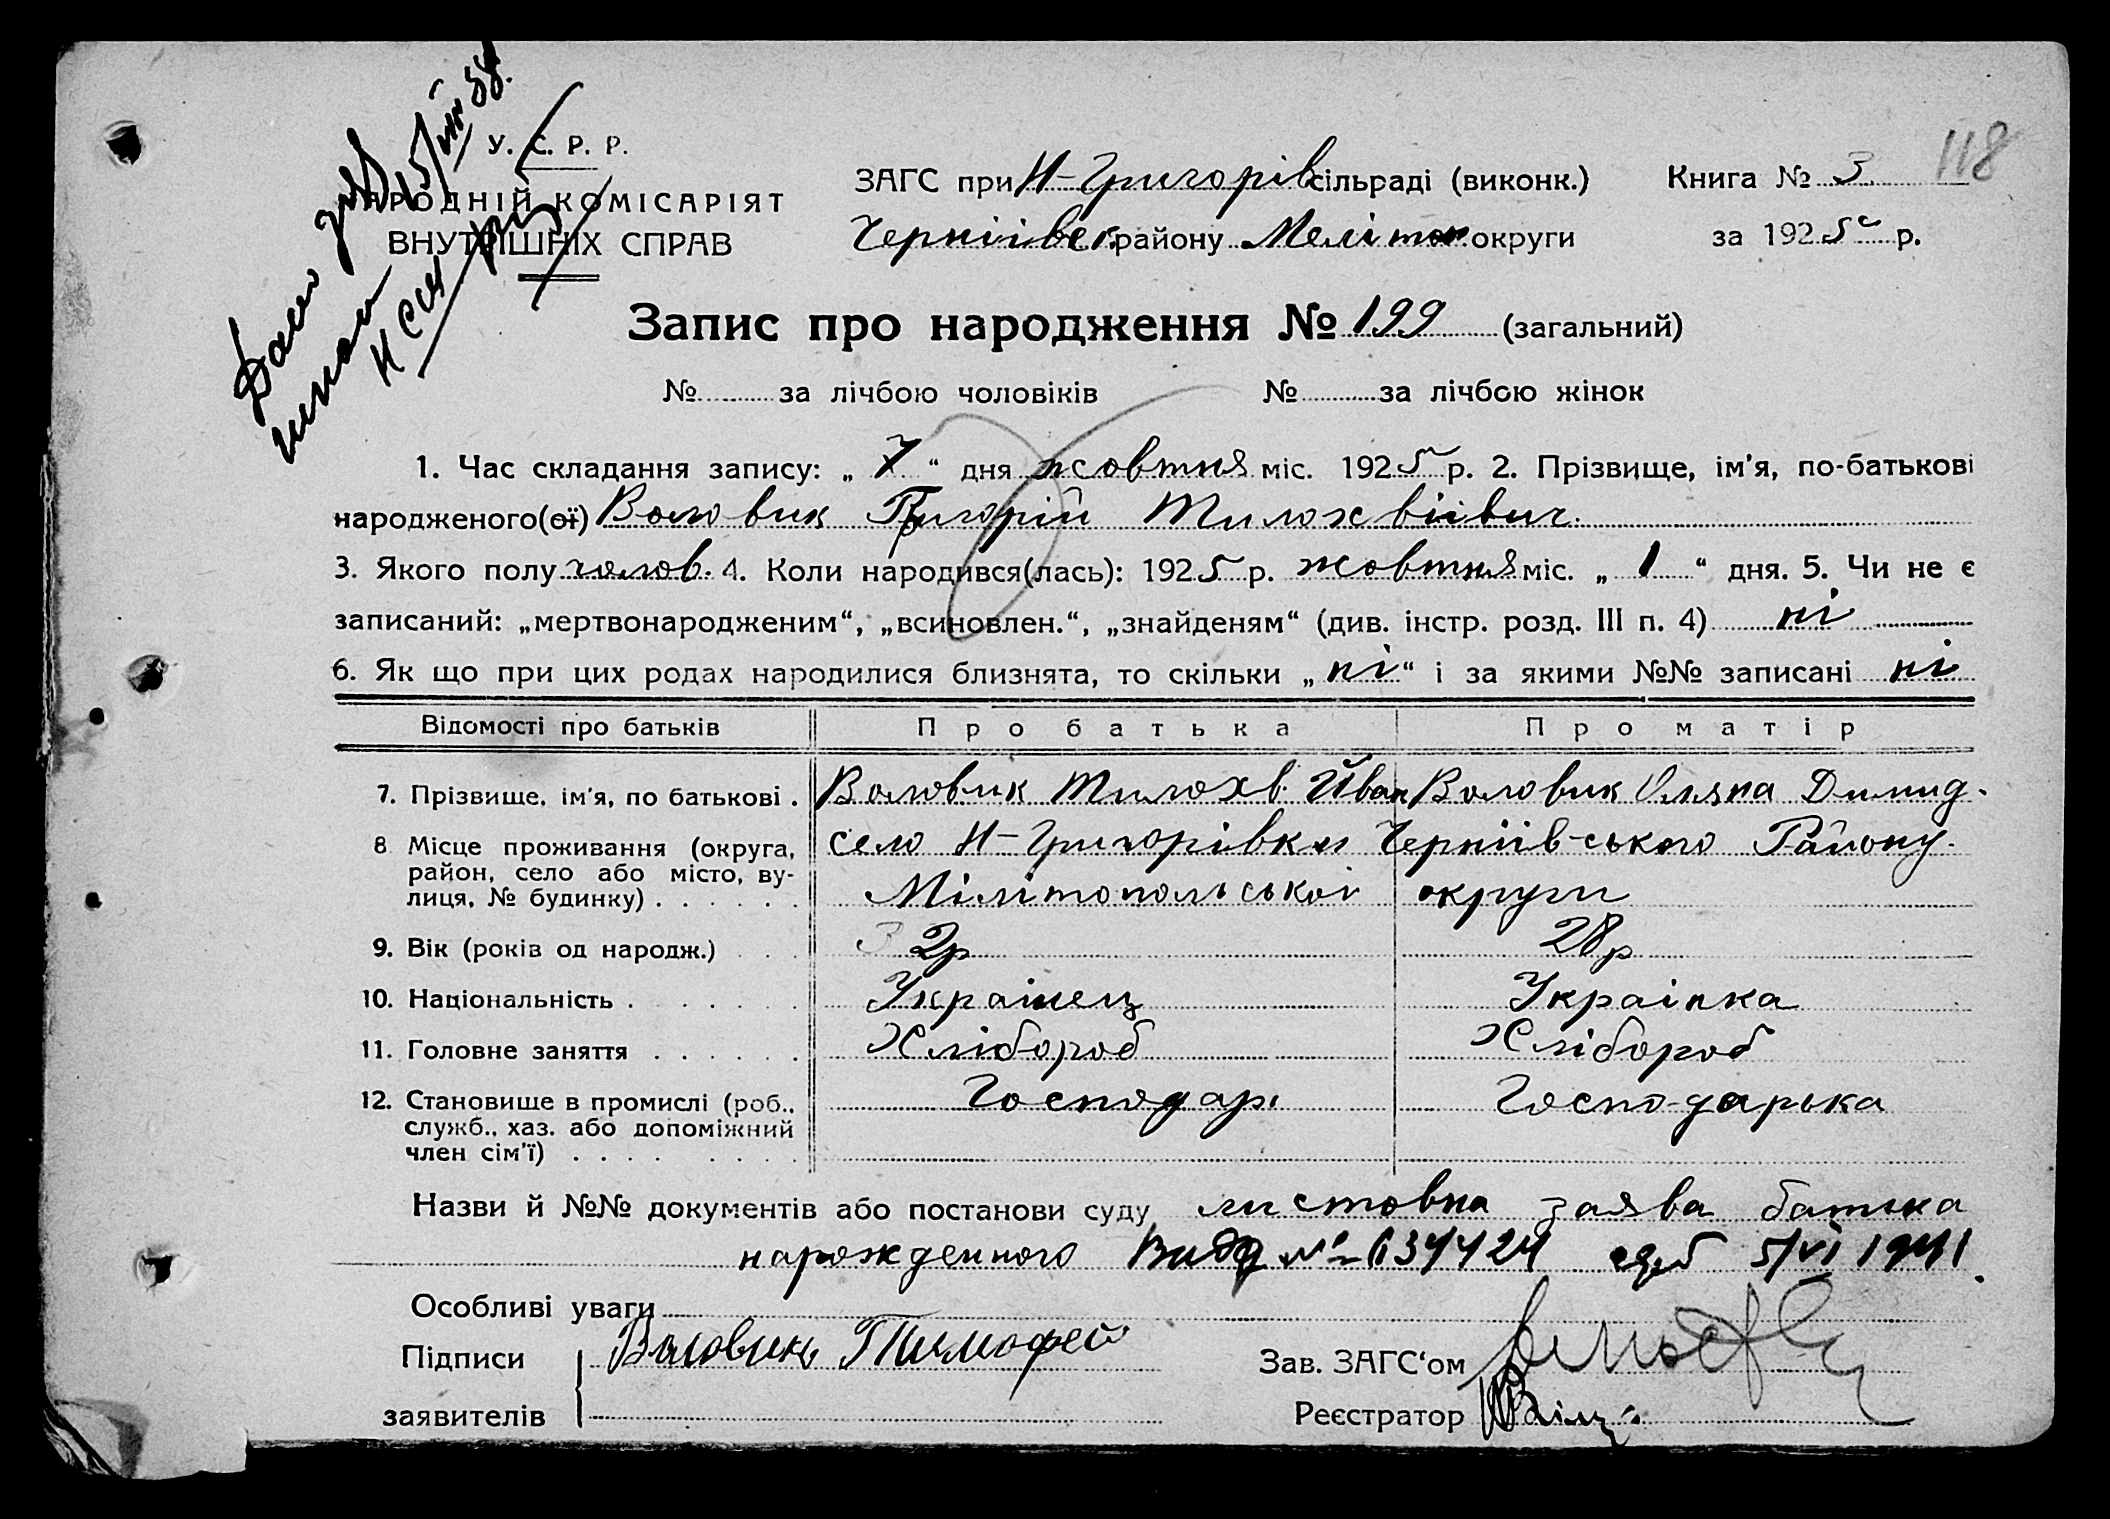 118
У. С. Р. Р.
НАРОДНІЙ КОМІСАРІЯТ
ВНУТРІШНІХ СПРАВ
ЗАГС при Н-Григорів сільраді (виконк.)
Черніівск району Меліток округи
Книга № 3
за 1925 р.
Запис про народження № 199 (загальний)
№ за лічбою чоловіків № за лічбою жінок
1. Час складання запису: „ 7 “ дня жовтня міс. 1925 р. 2. Прізвище, ім'я, по-батькові
народженого(ої) Воловик Григорій Тимохвіівич.
3. Якого полу чолов. 4. Коли народився(лась): 1925 р. жовтня міс. „ 1 “ дня. 5. Чи не є
записаний: „мертвонародженим“, „всиновлен.“, „знайденям“ (див. інстр. розд. III п. 4) ні
6. Як що при цих родах народилися близнята, то скільки „ ні “ і за якими №№ записані ні
Відомості про батьків Про батька Про матір
7. Прізвище, ім'я, по батькові . Воловик Тимохв. Йван Воловик Оляна Димид.
8 Місце проживання (округа, район, село або місто, вулиця, № будинку) . . . . . . село Н-Григорівки Черніів-ського Району.
Мілітопольськоі округи
9. Вік (років од народж.) . . . 32р 28р
10. Національність . . . . . . Украінец Украінка
11. Головне заняття . . . . . . Хлібороб Хлібороб
12. Становище в промислі (роб., служб., хаз. або допоміжний член сім'ї) . . . . . . . . Господар Господарька
Назви й №№ документів або постанови суду листовна заява батька
нарожденного Видд № 634424 5/VI 1941.
Особливі уваги
Підписи Воловикъ Тимофей
заявителів
Зав. ЗАГС‘ом
Реєстратор